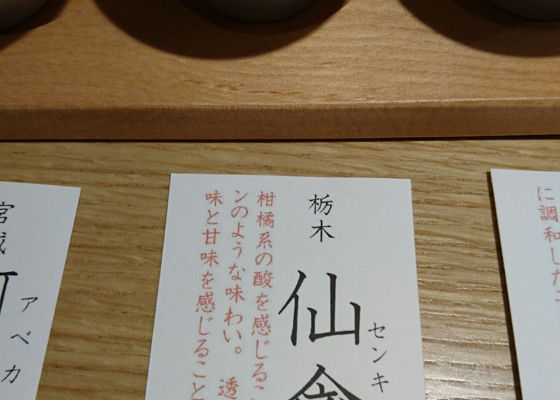 に調和した
栃木
センキ
仙
柑橘系の酸を感じるこ
ンのような味わい。 透
味と甘味を感じること
宮城
アベカ